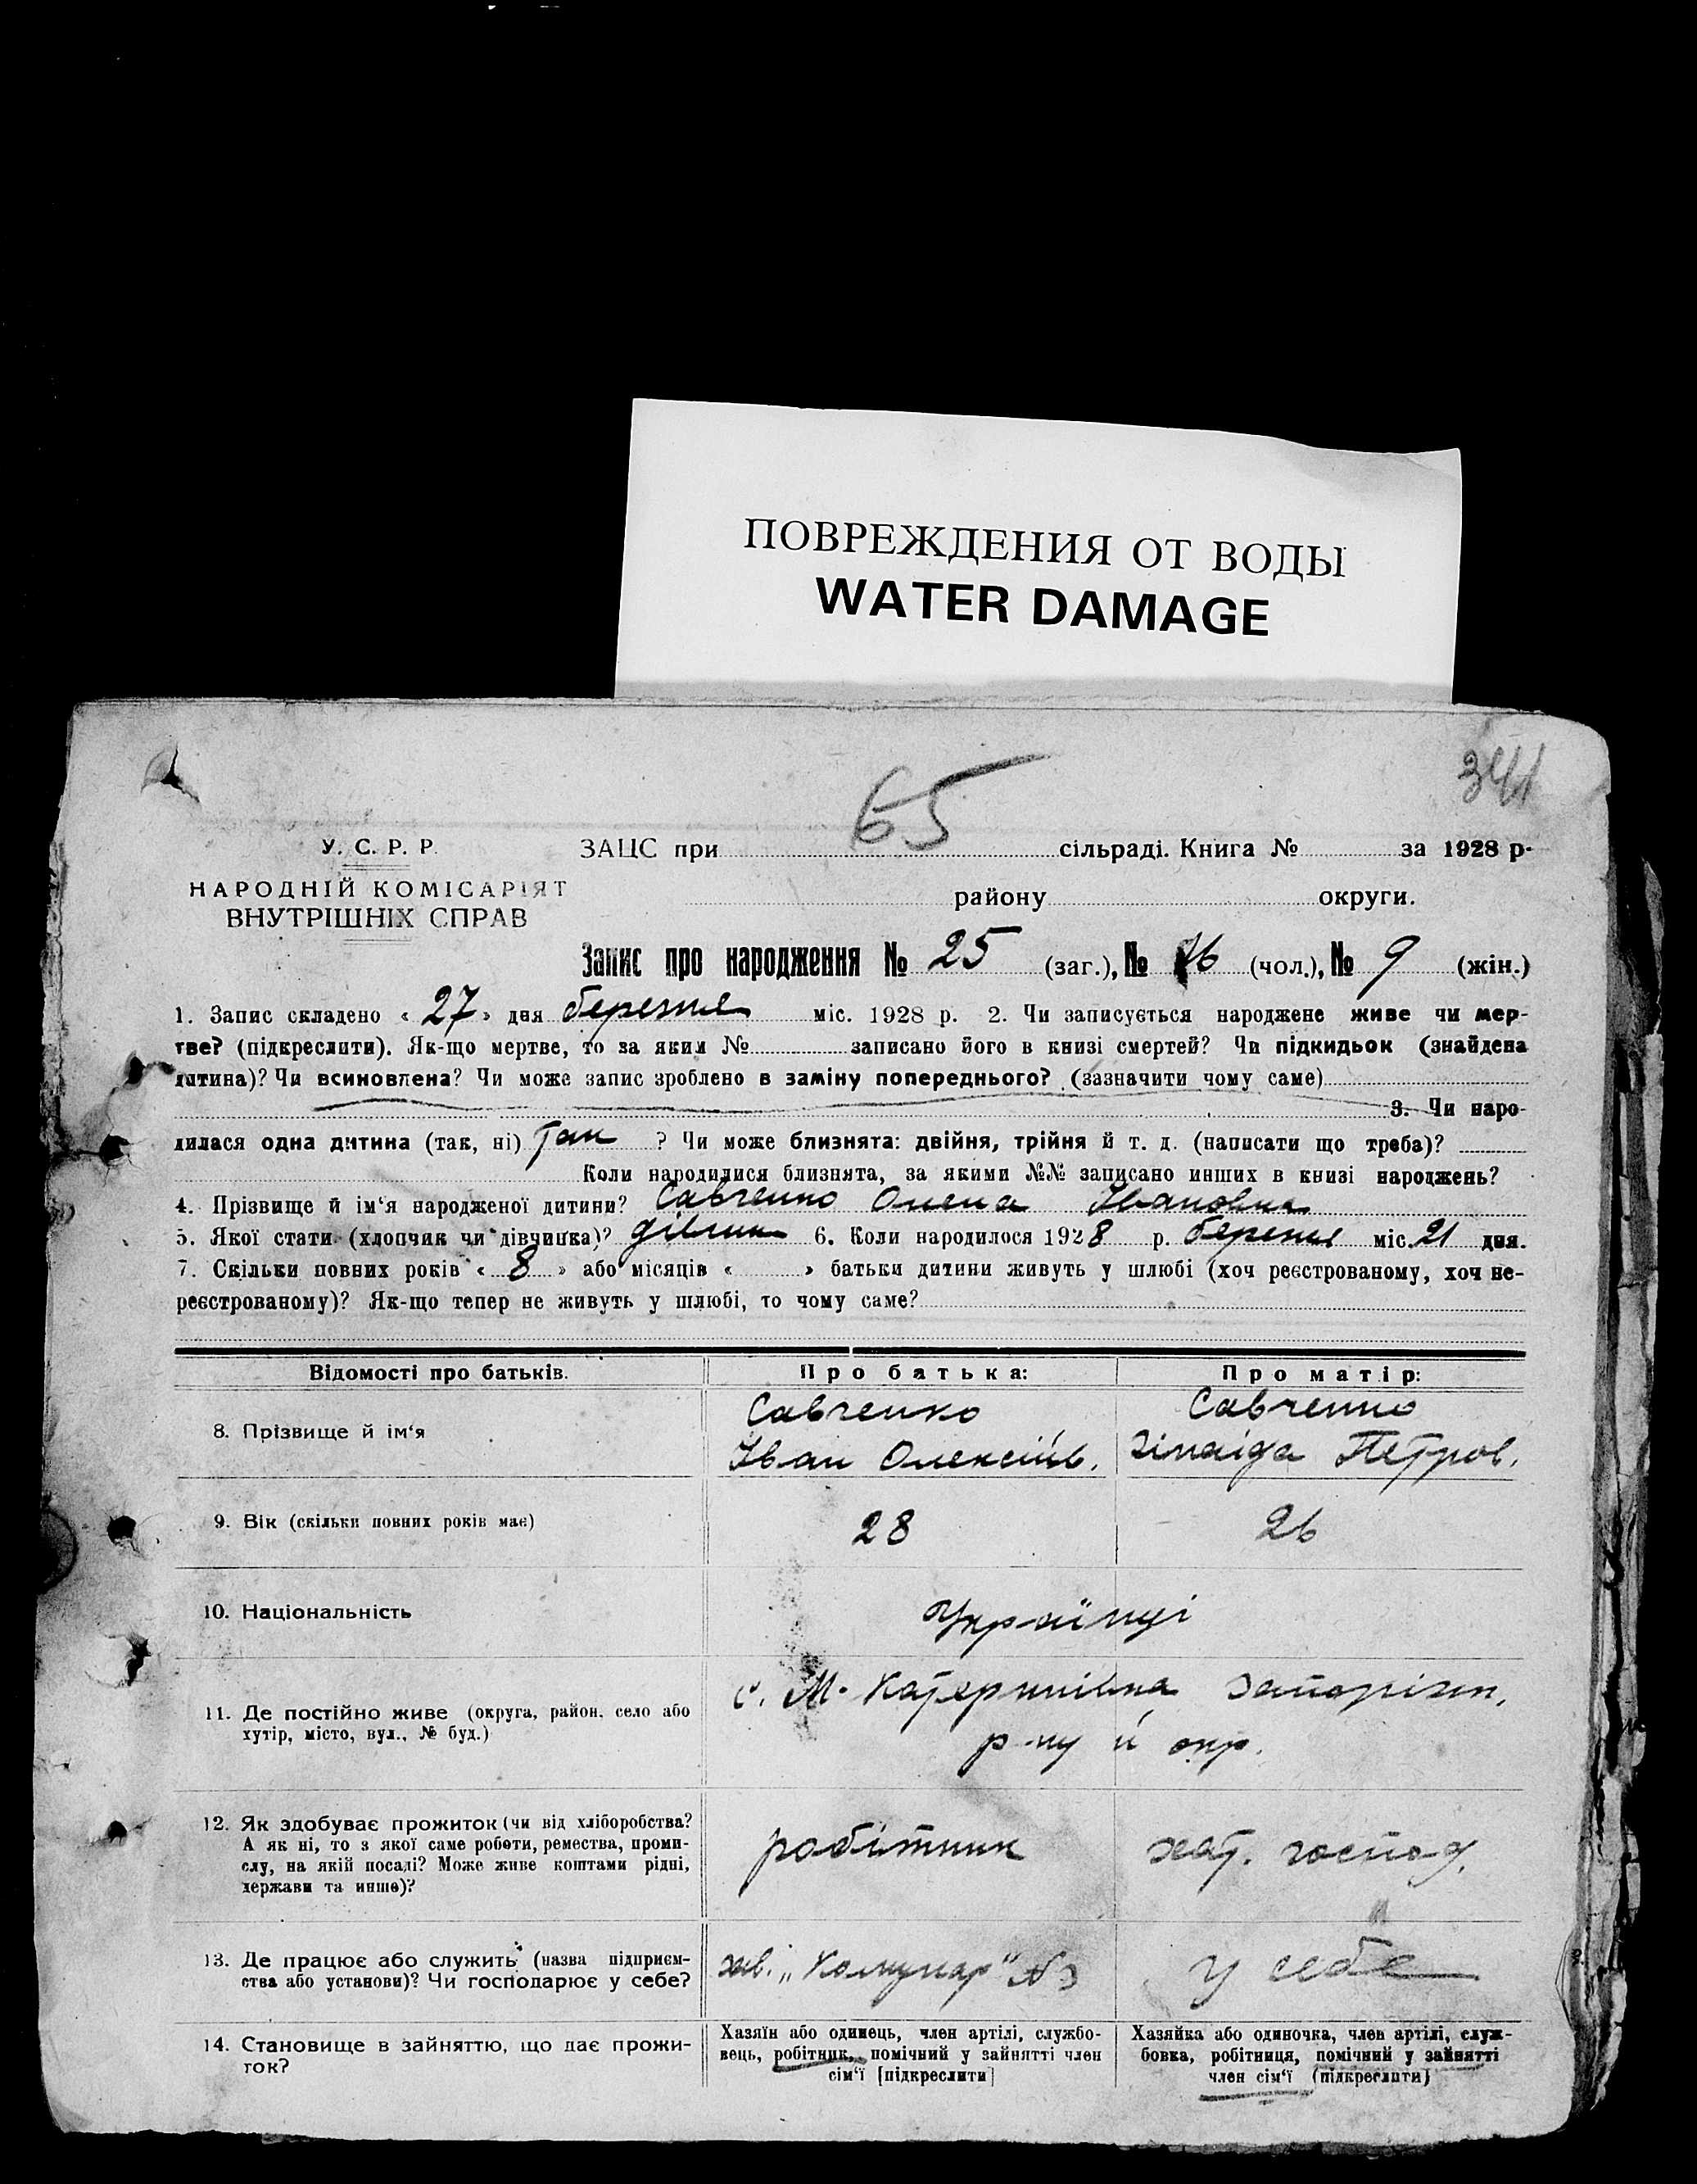 ПОВРЕЖДЕНИЯ ОТ ВОДЫ
WATER DAMAGE
65
341
У. С. Р. Р.
НАРОДНІЙ КОМІСАРІЯТ
ВНУТРІШНІХ СПРАВ
ЗАЦС при сільраді. Книга № за 1928 р.
району округи.
Запис про народження № 25 (заг.), № 16 (чол.), № 9 (жін.)
1. Запис складено « 27 » дня березня міс. 1928 р. 2. Чи записується народжене живе чи мер-
тве? (підкреслити). Як-що мертве, то за яким № записано його в книзі смертей? Чи підкидьок (знайдена
дитина)? Чи всиновлена? Чи може запис зроблено в заміну попереднього? (зазначити чому саме)
3. Чи наро-
дилася одна дитина (так, ні) так ? Чи може близнята: двійня, трійня й т. д. (написати що треба)?
Коли народилися близнята, за якими №№ записано инших в книзі народжень?
4. Прізвище й ім‘я народженої дитини? Савченко Олена Івановна
5. Якої стати (хлопчик чи дівчинка)? дівчин 6. Коли народилося 1928 р. березня міс. 21 дня.
7. Скільки повних років « 8 » або місяців « » батьки дитини живуть у шлюбі (хоч реєстрованому, хоч не-
реєстрованому)? Як-що тепер не живуть у шлюбі, то чому саме?
Відомості про батьків. Про батька: Про матір:
8. Прізвище й ім‘я
Савченко
Іван Олексійв.
Савченко
Зінаіда Петров.
9. Вік (скільки повних років має) 28 26
10. Національність Українці
11. Де постійно живе (округа, район, село або
хутір, місто, вул., № буд.)
с. М. Катеринівка Запоріжн.
р-ну й окр.
12. Як здобуває прожиток (чи від хліборобства?
А як ні, то з якої саме роботи, ремества, проми-
слу, на якій посаді? Може живе коштами рідні,
держави та инше)?
робітник
хат. господ.
13. Де працює або служить (назва підприєм-
ства або установи)? Чи господарює у себе?
зав. „Комунар" № 3
у себе
14. Становище в зайняттю, що дає прожи-
ток?
Хазяїн або одинець, член артілі, службо-
вець, робітник, помічний у зайнятті член
сім‘ї [підкреслити]
Хазяйка або одиночка, член артілі, служ-
бовка, робітниця, помічний у зайнятті
член сім‘ї (підкреслити)